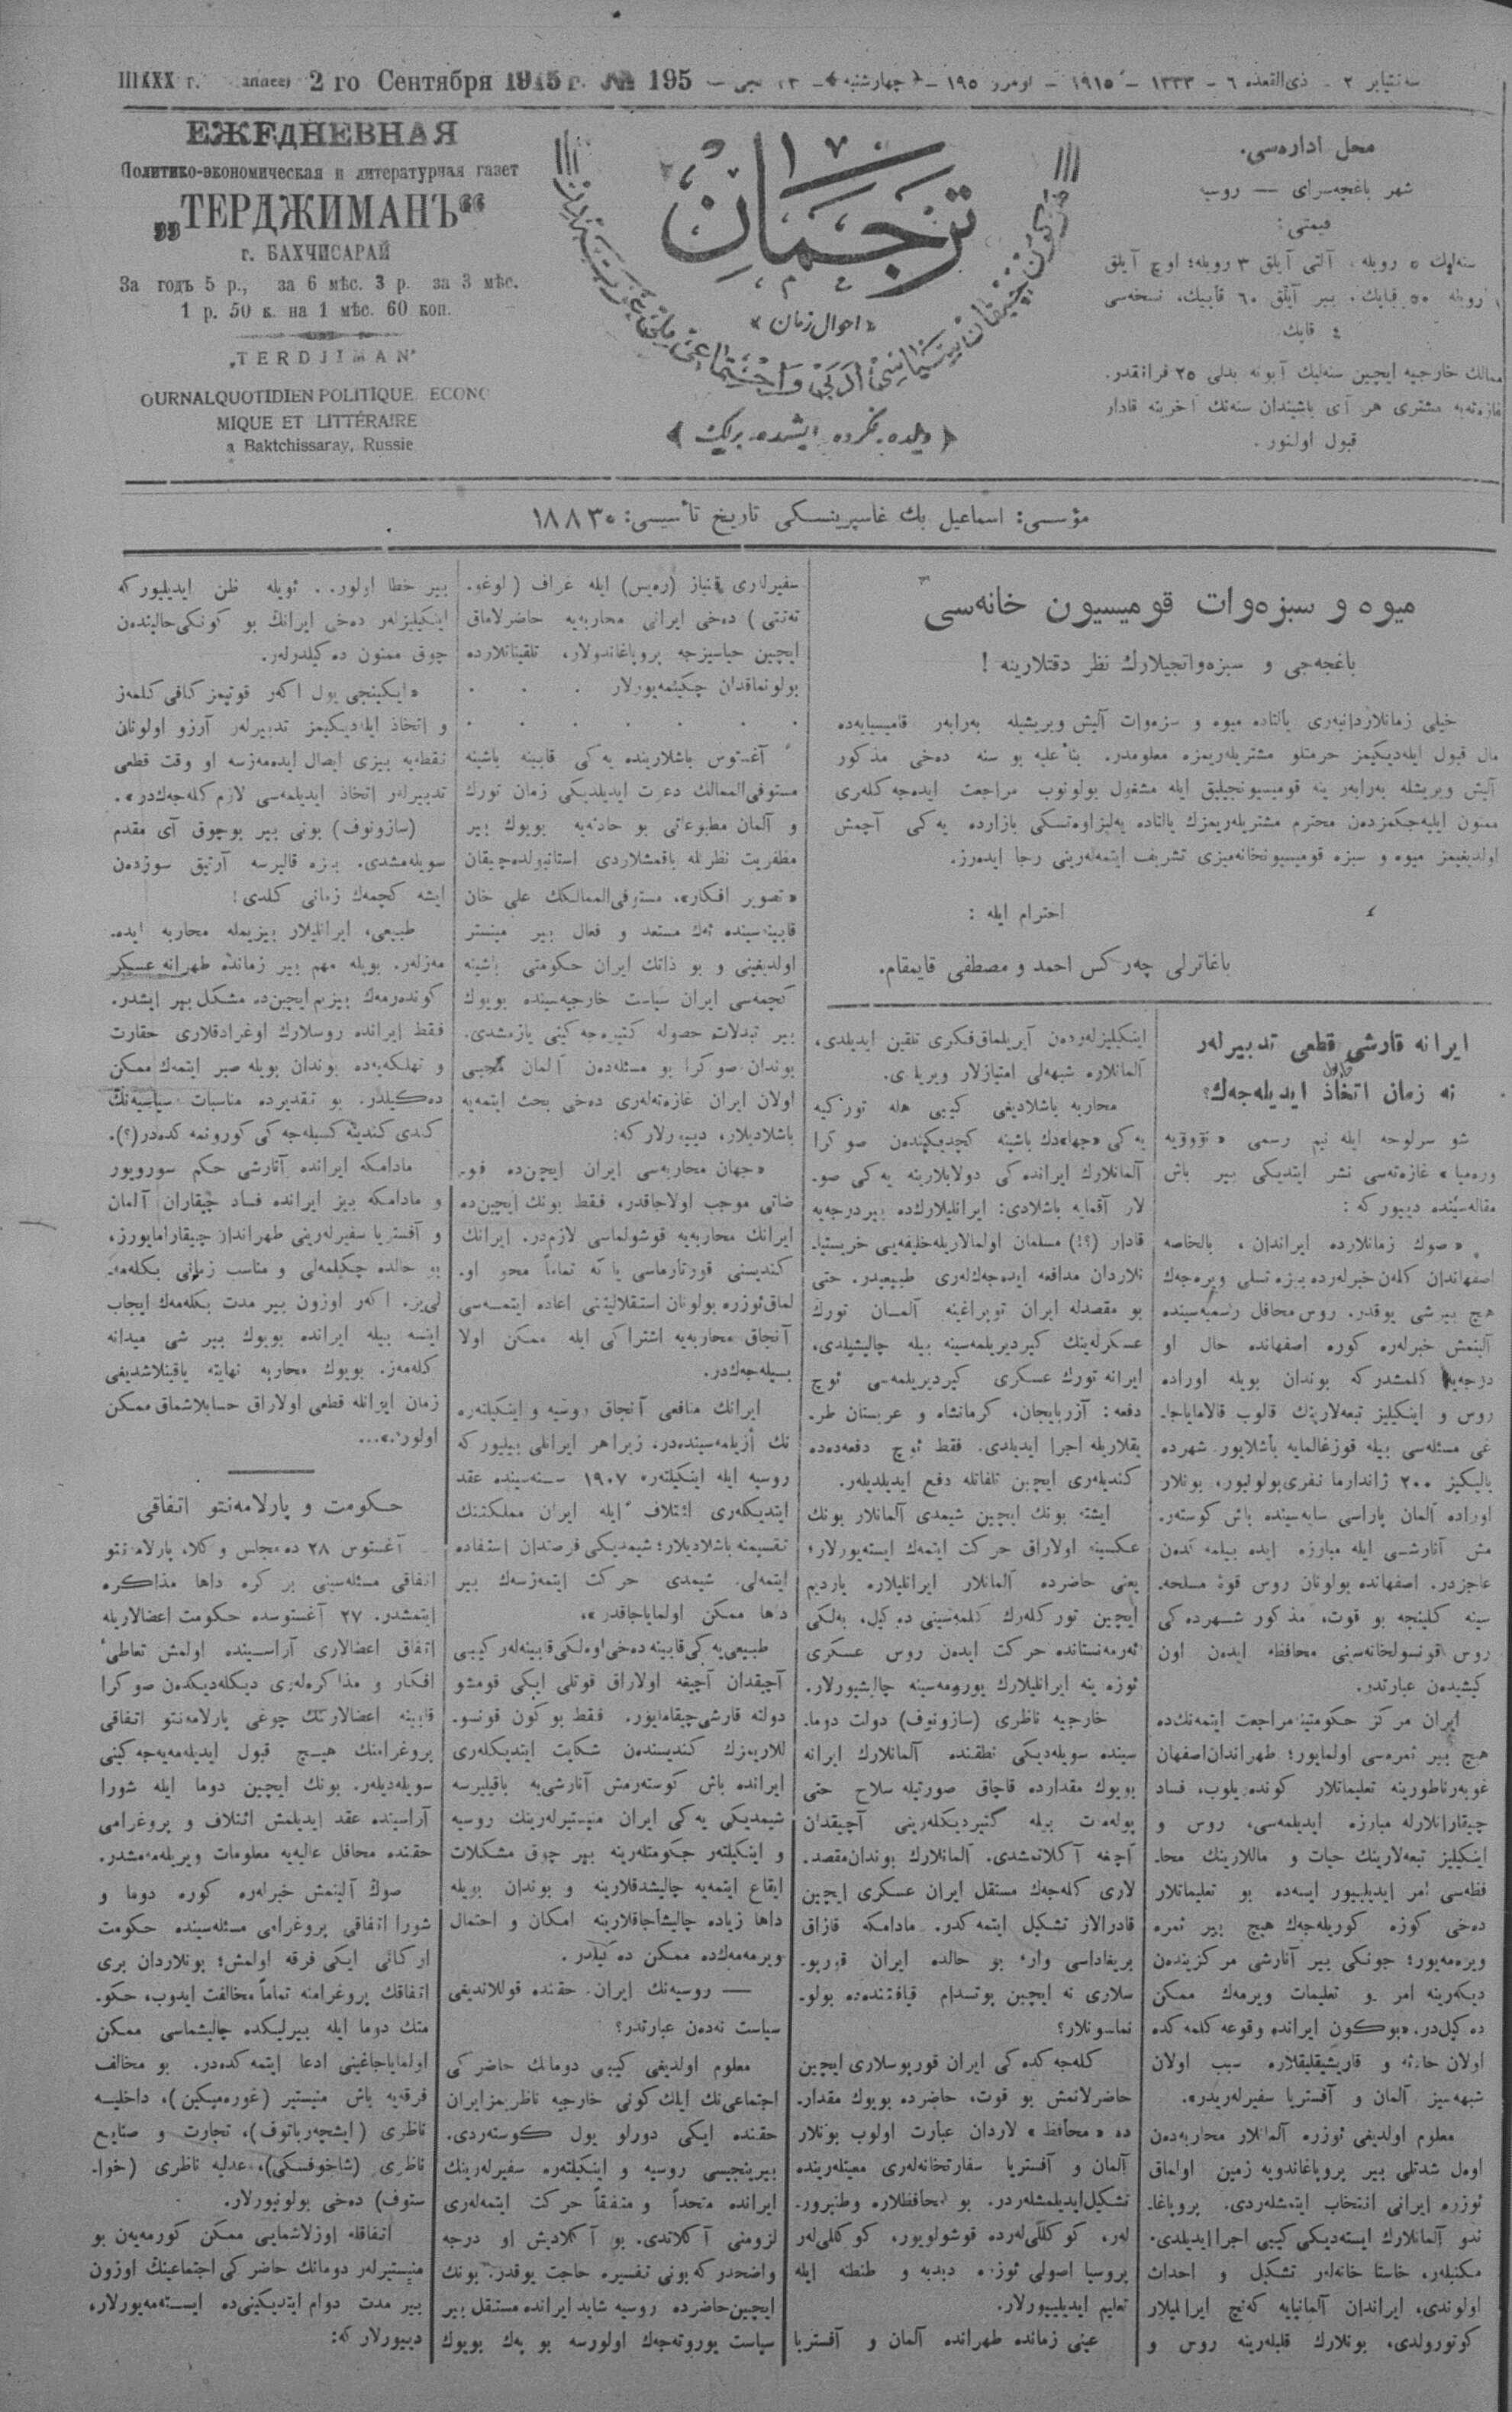 سەنتیابر ٢ - ذی‌القعده ٦ - ١٣٣٣ - ١٩١٥ - نومرو ١٩٥ - ﴿چهارشنبه﴾ - ٣٣ نجی -
2 го Сентября 1915 г. № 195
ЕЖЕДНЕВНАЯ
Политико-экономическая и литературная газет
„ТЕРДЖИМАНЪ“
г. БАХЧИСАРАЙ
За годъ 5 р., за 6 мѣс. 3 р. за 3 мѣс.
1 р. 50 к. на 1 мѣс. 60 коп.
„TERDJIMAN“
OURNAL QUOTIDIEN POLITIQUE, ECONO
MIQUE ET LITTÉRAIRE
a Baktchissaray, Russie
ترجمان
«احوال زمان»
﴿دیلده، فکرده، ایشده، برلك﴾
محل اداره‌سی.
شهر باغچه‌سرای — روسیه
قیمتی:
سنه‌لیك ٥ روبله، آلتی آیلق ٣ روبله؛ اوچ آیلق
١ روبله ٥٠ قاپیك، بیر آیلق ٦٠ قاپیك، نسخه‌سی
٤ قاپك
ممالك خارجیه ایچین سنه‌لیك آبونه بدلی ٢٥ فرانقدر.
غازه‌ته‌یه مشتری هر آی باشیندان سنه‌نك آخرینه قادار
قبول اولنور.
مؤسسی: اسماعیل بك غاسپرینسکی تاریخ تأسیسی: ١٨٨٣
میوه و سبزه‌وات قومیسیون خانه‌سی
باغچه‌جی و سبزه‌واتجیلارك نظر دقتلارینه!
خیلی زمانلاردانبه‌ری یالتاده میوه و سبزه‌وات آلیش ویریشیله به‌رابه‌ر قامیسیایه‌ده
مال قبول ایله‌دیکیمز حرمتلو مشتریله‌ریمزه معلومدر. بناءً علیه بو سنه ده‌خی مذکور
آلیش ویریشله به‌رابه‌ر ینه قومیسیونجیلیق ایله مشغول بولونوب مراجعت ایده‌جه‌کله‌ری
ممنون ایلیه‌جکمزدن محترم مشتریله‌ریمزك یالتاده یه‌لیزاوه‌تسکی بازارده یه‌کی آچمش
اولدیغیمز میوه و سبزه قومیسیونخانه‌میزی تشریف ایتمه‌له‌رینی رجا ایده‌رز.
احترام ایله:
باغاترلی چه‌رکس احمد و مصطفی قایمقام.
ایرانه قارشی قطعی تدبیرله‌ر
نه زمان اتخاذ ایدیله‌جه‌ك؟
شو سرلوحه ایله نیم رسمی «نوووَیه
وره‌میا» غازه‌ته‌سی نشر ایتدیکی بیر باش
مقاله‌سینده دییورکه:
«صوك زمانلارده ایراندان، بالخاصه
اصفهاندان کله‌ن خبرله‌رده بیزه تسلی ویره‌جه‌ك
هیچ بیرشی یوقدر. روس محافل رسمیه‌سینده
آلینمش خبرله‌ره کوره اصفهانده حال او
درجه‌یه کلمشدرکه بوندان بویله اوراده
روس و اینکیلیز تبعه‌لارینك قالوب قالامایاجا-
غی مسئله‌سی بیله قوزغالمایه باشلایور. شهرده
یالیکیز ٢٠٠ ژاندارما نفری بولونیور، بونلار
اوراده آلمان پاراسی سایه‌سینده باش کوسته‌ر-
مش آنارشی ایله مبارزه ایده بیلمه‌کدن
عاجزدر. اصفهانده بولونان روس قوهٔ مسلحه-
سینه کلینجه بو قوت، مذکور شهرده‌کی
روس قونسولخانه‌سینی محافظه ایده‌ن اون
کیشیده‌ن عبارتدر.
ایران مرکز حکومتینه مراجعت ایتمه‌نك‌ده
هیچ بیر ثمره‌سی اولمایور؛ طهراندان اصفهان
غوبه‌رناطورینه تعلیماتلار کونده‌ریلوب، فساد
چیقارانلارله مبارزه ایدیلمه‌سی، روس و
اینکیلیز تبعه‌لارینك حیات و ماللارینك محا-
فظه‌سی امر ایدیلییور ایسه‌ده بو تعلیماتلار
ده‌خی کوزه کوریله‌جه‌ك هیچ بیر ثمره
ویره‌مه‌یور؛ چونکی بیر آنارشی مرکزینده‌ن
دیکه‌رینه امر و تعلیمات ویرمه‌ك ممکن
ده‌کیل‌در. «بوکون ایرانده وقوعه کلمه‌کده
اولان حادثه و قاریشیقلیقلاره سبب اولان
شبهه‌سیز آلمان و آفستریا سفیرله‌ریدر».
معلوم اولدیغی ئوزره آلمانلار محاربه‌ده‌ن
اوه‌ل شدتلی بیر پروپاغاندویه زمین اولماق
ئوزره ایرانی انتخاب ایتمشله‌ردی. پروپاغا-
ندو آلمانلارك ایسته‌دیکی کیبی اجرا ایدیلدی.
مکتبلەر، خاستا خانه‌لەر تشکیل و احداث
اولوندی، ایراندان آلمانیایه که‌نچ ایرانلیلار
کوتورولدی، بونلارك قلبله‌رینه روس و
اینکیلیزله‌رده‌ن آیریلماق فکری تلقین ایدیلدی،
آلمانلاره شبهه‌لی امتیازلار ویریلدی.
محاربه باشلادیغی کیبی هله تورکیه
یه‌کی «جهاد»ك باشینه کچدیکینده‌ن صوکرا
آلمانلارك ایرانده‌کی دولابلارینه یه‌کی صو-
لار آقمایه باشلادی: ایرانلیلارك‌ده بیردرجه‌یه
قادار (؟!) مسلمان اولمالاریله خلیفه‌یی خریستیا-
نلاردان مدافعه ایده‌جه‌کله‌ری طبیعیدر. حتی
بو مقصدله ایران توپراغینه آلمان تورك
عسکرله‌رینك کیردیریلمه‌سینه بیله چالیشیلدی،
ایرانه تورك عسکری کیردیریلمه‌سی ئوچ
دفعه: آزربایجان، کرمانشاه و عربستان طر-
یقلاریله اجرا ایدیلدی. فقط ئوچ دفعه‌ده‌ده
کندیله‌ری ایچین تلفاتله دفع ایدیلدیله‌ر.
ایشته بونك ایچین شیمدی آلمانلار بونك
عکسینه اولاراق حرکت ایتمه‌ك ایسته‌یورلار؛
یعنی حاضرده آلمانلار ایرانلیلاره یاردیم
ایچین تورکله‌رك کلمه‌سینی ده‌کیل، به‌لکی
ئه‌رمه‌نستانده حرکت ایده‌ن روس عسکری
ئوزه‌ینه ایرانلیلارك یورومه‌سینه چالیشیورلار.
خارجیه ناظری (سازونوف) دولت دوما-
سینده سویله‌دیکی نطقنده آلمانلارك ایرانه
بویوك مقدارده قاچاق صورتیله سلاح حتی
پوله‌مت بیله کتیردیکله‌رینی آچیقدان
آچغه آکلاتمشدی. آلمانلارك بوندان مقصد-
لاری کله‌جه‌ك مستقل ایران عسکری ایچین
قادرالار تشکیل ایتمه‌کدر. مادامکه قازاق
بریغاداسی وار؛ بو حالده ایران قورپو-
سلاری نه ایچین بوتدام قیافتنده‌ده بولو-
نماسونلار؟
کله‌جه‌کده‌کی ایران قورپوسلاری ایچین
حاضرلانمش بو قوت، حاضرده بویوك مقدار-
ده «محافظ»لاردان عبارت اولوب بونلار
آلمان و آفستریا سفارتخانه‌له‌ری معیتله‌رینده
تشکیل ایدیلمشله‌ردر. بو محافظلاره وظنپرور-
له‌ر، کوکللی‌له‌رده قوشولویور، کوکللی‌له‌ر
پروسیا اصولی ئوزه‌ره دبدبه و طنطنه ایله
تعلیم ایدیلییورلار.
عینی زمانده طهرانده آلمان و آفستریا
سفیرلاری قنیاز (ره‌یس) ایله غراف (لوغو-
ته‌تتی) ده‌خی ایرانی محاربه‌یه حاضرلاماق
ایچین حیاسیزجه پروپاغاندولار، تلقیناتلارده
بولونماقدان چکینمه‌یورلار . . .
. . . . . . .
آغستوس باشلارینده یه‌کی قابینه باشینه
مستوفی‌الممالك دعوت ایدیلدیکی زمان تورك
و آلمان مطبوعاتی بو حادثه‌یه بویوك بیر
مظفریت نظریله باقمشلاردی استانبولده‌چیقان
«تصویر افکار»، مستوفی‌الممالکك علی خان
قابینه‌سینده ئه‌ك مستعد و فعال بیر مینستر
اولدیغینی و بو ذاتك ایران حکومتی باشینه
کچمه‌سی ایران سیاست خارجیه‌سینده بویوك
بیر تبدلات حصوله کتیره‌جه‌کینی یازمشدی.
بوندان صوکرا بو مسئله‌ده‌ن آلمان محبی
اولان ایران غازه‌ته‌له‌ری ده‌خی بحث ایتمه‌یه
باشلادیلار، دییورلارکه:
«جهان محاربه‌سی ایران ایچین‌ده فو-
ضاتی موجب اولاجاقدر، فقط بونك ایچین‌ده
ایرانك محاربه‌یه قوشولماسی لازم‌در. ایرانك
کندیسنی قورتارماسی یاکه تماماً محو او-
لماق ئوزره بولونان استقلالیتنی اعاده ایتمه‌سی
آنجاق محاربه‌یه اشتراکی ایله ممکن اولا
بیله‌جه‌كدر.
ایرانك منافعی آنجاق روسیه و اینکیلته‌ره
نك أزیلمه‌سینده‌در، زیرا هر ایرانلی بیلیورکه
روسیه ایله اینکیلته‌ره ١٩٠٧ سنه‌سینده عقد
ایتدیکله‌ری ائتلاف ایله ایران مملکتنك
تقسیمنه باشلادیلار؛ شیمدیکی فرصتدان استفاده
ایتمه‌لی. شیمدی حرکت ایتمه‌زسه‌ك بیر
داها ممکن اولمایاجاقدر»،
طبیعی یه‌کی قابینه ده‌خی اوه‌لکی قابینه‌له‌ر کیبی
آچیقدان آچیغه اولاراق قوتلی ایکی قومشو
دولته قارشی چیقامایور. فقط بوکون قونسو-
للاریمزك کندیسنده‌ن شکایت ایتدیکله‌ری
ایرانده باش کوسته‌رمش آنارشی‌یه باقیلیرسه
شیمدیکی یه‌کی ایران مینیستیرله‌رینك روسیه
و اینکیلته‌ر حکومتله‌رینه بیر چوق مشکلات
ایقاع ایتمه‌یه چالیشدقلارینه و بوندان بویله
داها زیاده چالیشاجاقلارینه امکان و احتمال
ویرمه‌مه‌ك‌ده ممکن ده‌کیلدر.
— روسیه‌نك ایران حقنده قوللاندیغی
سیاست نه‌ده‌ن عبارتدر؟
معلوم اولدیغی کیبی دومانك حاضرکی
اجتماعی‌نك ایلك کونی خارجیه ناظریمز ایران
حقنده ایکی دورلو یول کوسته‌ردی.
بیرینجیسی روسیه و اینکیلته‌ره سفیرله‌رینك
ایرانده متحداً و متفقاً حرکت ایتمه‌له‌ری
لزومنی آکلاتدی. بو آکلادیش او درجه
واضحدرکه بونی تفسیره حاجت یوقدر. بونك
ایچین حاضرده روسیه شاید ایرانده مستقل بیر
سیاست یوروته‌جه‌ك اولورسه بو په‌ك بویوك
بیر خطا اولور.. ئویله ظن ایدیلیورکه
اینکیلیزله‌ر ده‌خی ایرانك بو کونکی حالینده‌ن
چوق ممنون ده‌کیلدرله‌ر.
«ایکینجی یول اکه‌ر قوتیمز کافی کلمه‌ز
و اتخاذ ایله‌دیکیمز تدبیرله‌ر آرزو اولونان
نقطه‌یه بیزی ایصال ایده‌مه‌زسه او وقت قطعی
تدبیرله‌ر اتخاذ ایدیلمه‌سی لازم کله‌جه‌كدر».
(سازونوف) بونی بیر بوچوق آی مقدم
سویله‌مشدی. بیزه قالیرسه آرتیق سوزده‌ن
ایشه کچمه‌ك زمانی کلدی!
طبیعی، ایرانلیلار بیزیمله محاربه ایده-
مه‌زله‌ر. بویله مهم بیر زمانده طهرانه عسکر
کونده‌رمه‌ك بیزیم ایچین‌ده مشکل بیر ایشدر.
فقط ایرانده روسلارك اوغرادقلاری حقارت
و تهلکه‌یه‌ده بوندان بویله صبر ایتمه‌ك ممکن
ده‌کیلدر. بو تقدیرده مناسبات سیاسیه‌نك
کندی کندینه کسیله‌جه‌کی کورونمه‌کده‌در(؟).
مادامکه ایرانده آنارشی حکم سورویور
و مادامکه بیز ایرانده فساد چیقاران آلمان
و آفستریا سفیرله‌رینی طهراندان چیقارامایورز،
بو حالده چکیلمه‌لی و مناسب زمانی بکله‌مه-
لی‌یز. اکه‌ر اوزون بیر مدت بکله‌مه‌ك ایجاب
ایتسه بیله ایرانده بویوك بیر شی میدانه
کله‌مه‌ز. بویوك محاربه نهایته یاقینلاشدیغی
زمان ایرانله قطعی اولاراق حسابلاشماق ممکن
اولور.»...
حکومت و پارلامه‌نتو اتفاقی
آغستوس ٢٨ ده مجلس وکلاء پارلامه‌نتو
اتفاقی مسئله‌سینی بر کره داها مذاکره
ایتمشدر. ٢٧ آغستوسده حکومت اعضالاریله
اتفاق اعضالاری آراسینده اولمش تعاطیٔ
افکار و مذاکره‌له‌ری دیکله‌دیکده‌ن صوکرا
قابینه اعضالارینك چوغی پارلامه‌نتو اتفاقی
پروغرامنك هیچ قبول ایدیله‌مه‌یه‌جه‌کینی
سویله‌دیله‌ر. بونك ایچین دوما ایله شورا
آراسینده عقد ایدیلمش ائتلاف و پروغرامی
حقنده محافل عالیه‌یه معلومات ویریله‌مه‌مشدر.
صوك آلینمش خبرله‌ره کوره دوما و
شورا اتفاقی پروغرامی مسئله‌سینده حکومت
ارکانی ایکی فرقه اولمش؛ بونلاردان بری
اتفاقك پروغرامنه تماماً مخالفت ایدوب، حکو-
متك دوما ایله بیرلیکده چالیشماسی ممکن
اولمایاجاغینی ادعا ایتمه‌کده‌در. بو مخالف
فرقه‌یه باش مینیستیر (غوره‌میکین)، داخلیه
ناظری (ایشچه‌رباتوف)، تجارت و صنایع
ناظری (شاخوفسکی)، عدلیه ناظری (خوا-
ستوف) ده‌خی بولونیورلار.
اتفاقله اوزلاشمایی ممکن کورمه‌یه‌ن بو
مینیستیرله‌ر دومانك حاضرکی اجتماعینك اوزون
بیر مدت دوام ایتدیکینی‌ده ایسته‌مه‌یورلار،
دییورلارکه: